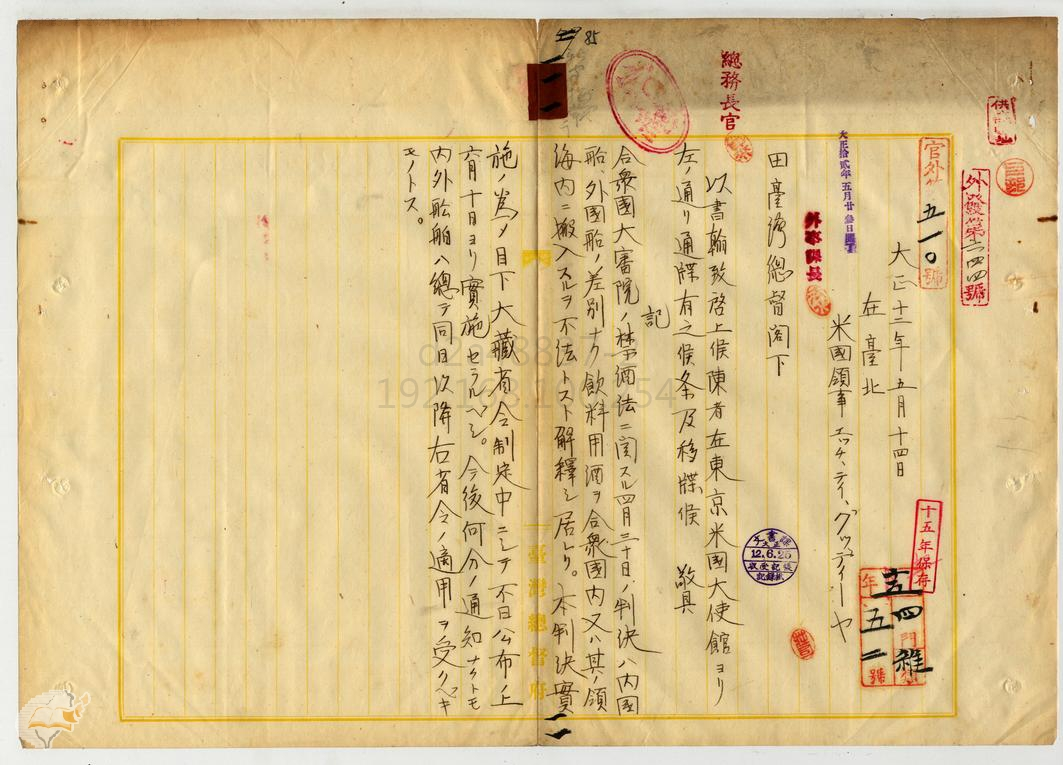 85
供閲
外發第二四四號
官外 五一〇號
大正十二年五月十四日
在臺北
米國領事 エッチ、ティ、グッディーヤ
大正拾貳年五月廿
外事課長
總務長官
田臺灣總督閣下
以書翰致啓上候陳者在東京米國大使館ヨリ
左ノ通リ通牒有之候条及移牒候 敬具
記
合衆國大審院ノ禁酒法ニ関スル四月三十日ノ判決ハ内國
船、外國船ノ差別ナク飲料用酒ヲ合衆國内又ハ其ノ領
海内ニ搬入スルヲ不法トスト解釋シ居レリ。本判決實
施ノ為メ目下大藏省令制定中ニシテ不日公布ノ上
六月十日ヨリ實施セラルベシ。今後何分ノ通知ナクトモ
内外舩舶ハ總テ同日以降右省令ノ適用ヲ受クベキ
モノトス。
十五年保存
文書課
大正
12.6.25
記録
年 五 號
四 門 雜
臺灣總督府
192.168.100.254